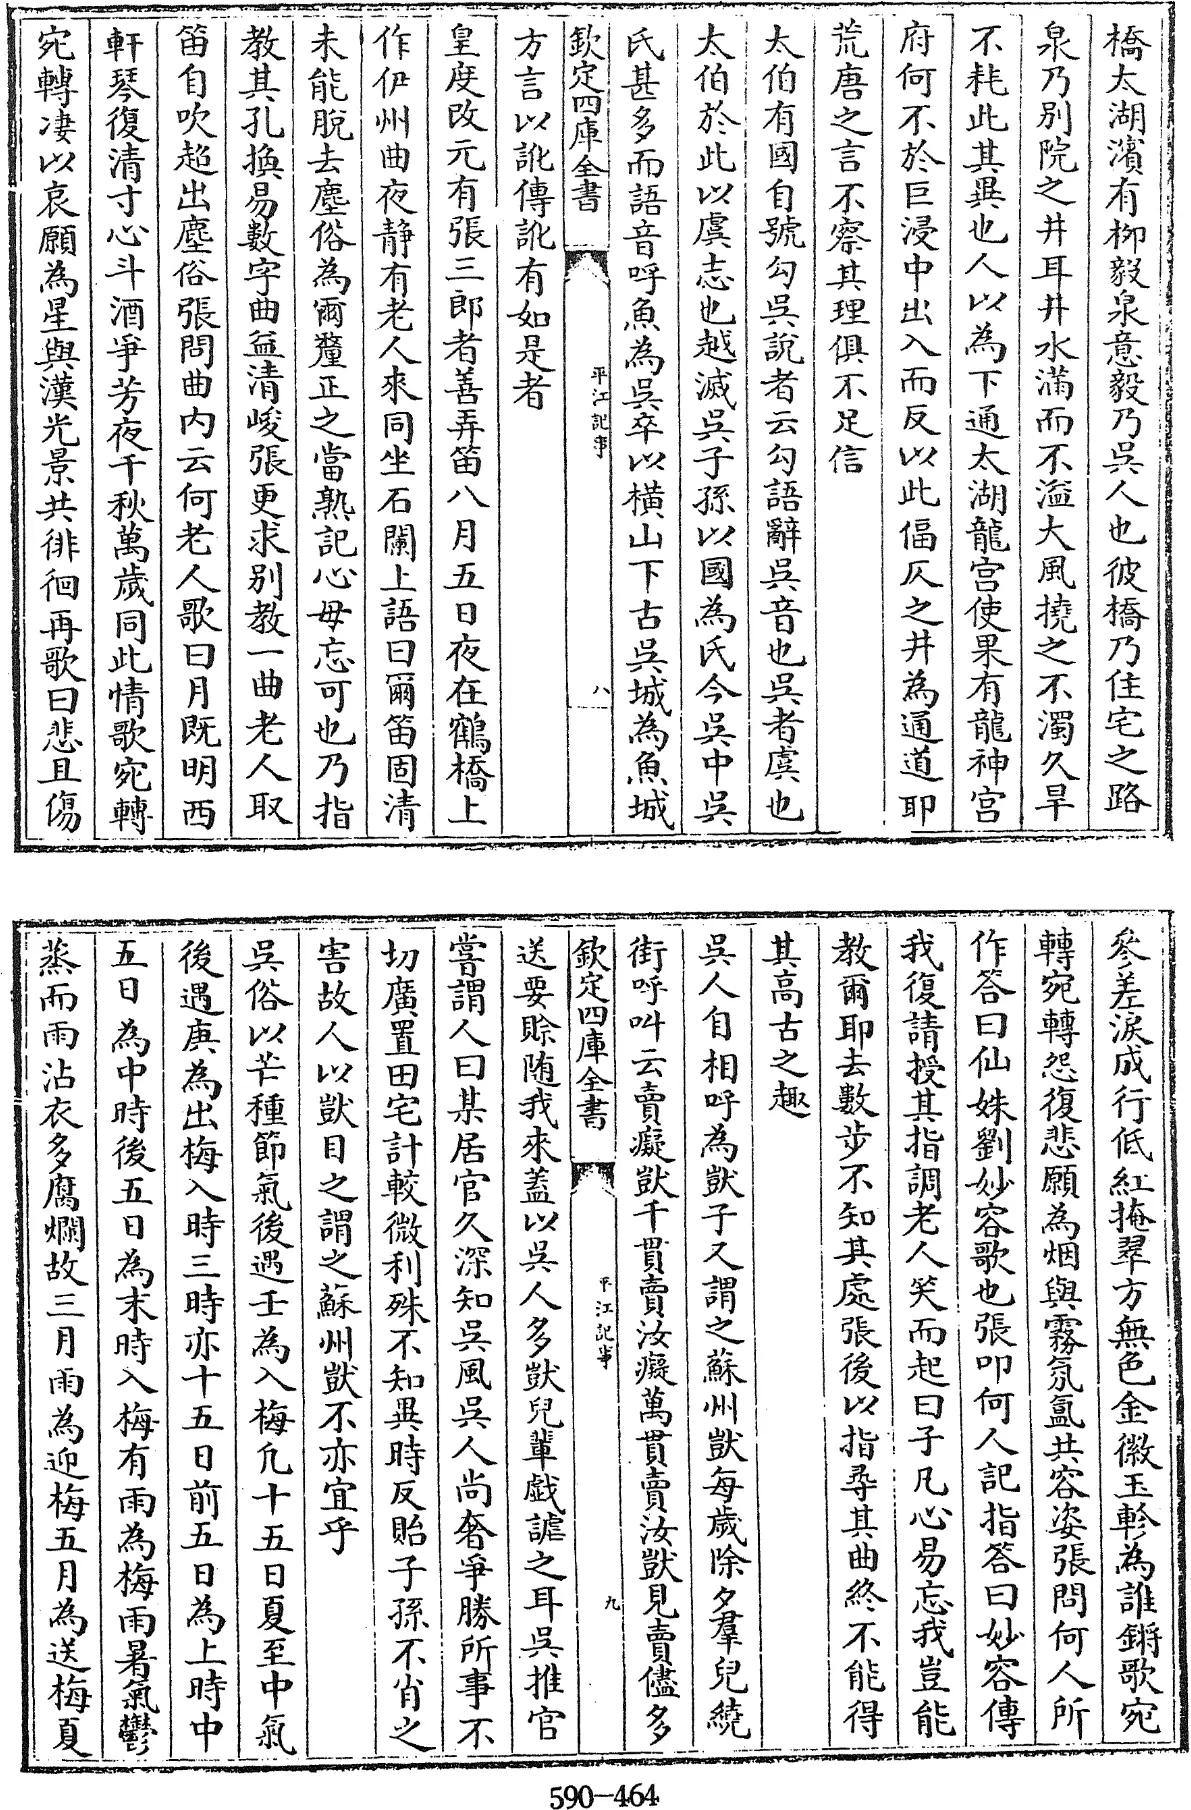 橋太湖濱有柳毅泉意毅乃吳人也彼橋乃住宅之路
泉乃别院之井耳井水滿而不溢大風撓之不濁久旱
不耗此其異也人以為下通太湖龍宫使果有龍神宫
府何不於巨浸中出入而反以此偪仄之井為通道耶
荒唐之言不察其理俱不足信
太伯有國自號勾吳說者云勾語辭吳音也吳者虞也
太伯於此以虞志也越滅吳子孫以國為氏今吳中吳
氏甚多而語音呼魚為吳卒以横山下古吳城為魚城
欽定四庫全書
平江記事
八
方言以訛傳訛有如是者
皇度改元有張三郎者善弄笛八月五日夜在鶴橋上
作伊州曲夜静有老人來同坐石闌上語曰爾笛固清
未能脱去塵俗為爾釐正之當熟記心毋忘可也乃指
教其孔換易數字曲益清峻張更求别教一曲老人取
笛自吹超出塵俗張問曲内云何老人歌曰月既明西
軒琴復清寸心斗酒爭芳夜千秋萬歲同此情歌宛轉
宛轉凄以哀願為星與漢光景共徘徊再歌曰悲且傷
參差淚成行低紅掩翠方無色金徽玉軫為誰鏘歌宛
轉宛轉怨復悲願為烟與霧氛氲共容姿張問何人所
作答曰仙姝劉妙容歌也張叩何人記指答曰妙容傳
我復請授其指調老人笑而起曰子凡心易忘我豈能
教爾耶去數步不知其處張後以指尋其曲終不能得
其高古之趣
吳人自相呼為獃子又謂之蘇州獃每歲除夕羣兒繞
街呼叫云賣癡獃千貫賣汝癡萬貫賣汝獃見賣儘多
欽定四庫全書
平江記事
九
送要賒随我來蓋以吳人多獃兒輩戲謔之耳吳推官
嘗謂人曰某居官久深知吳風吳人尚奢爭勝所事不
切廣置田宅計較微利殊不知異時反貽子孫不肖之
害故人以獃目之謂之蘇州獃不亦宜乎
吳俗以芒種節氣後遇壬為入梅凢十五日夏至中氣
後遇庚為出梅入時三時亦十五日前五日為上時中
五日為中時後五日為末時入梅有雨為梅雨暑氣鬱
蒸而雨沾衣多腐爛故三月雨為迎梅五月為送梅夏
590-464